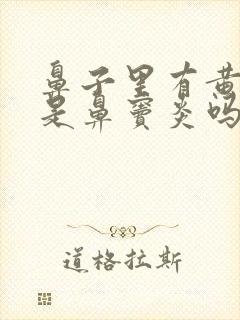 鼻子里有黄
是鼻窦炎吗
道格拉斯